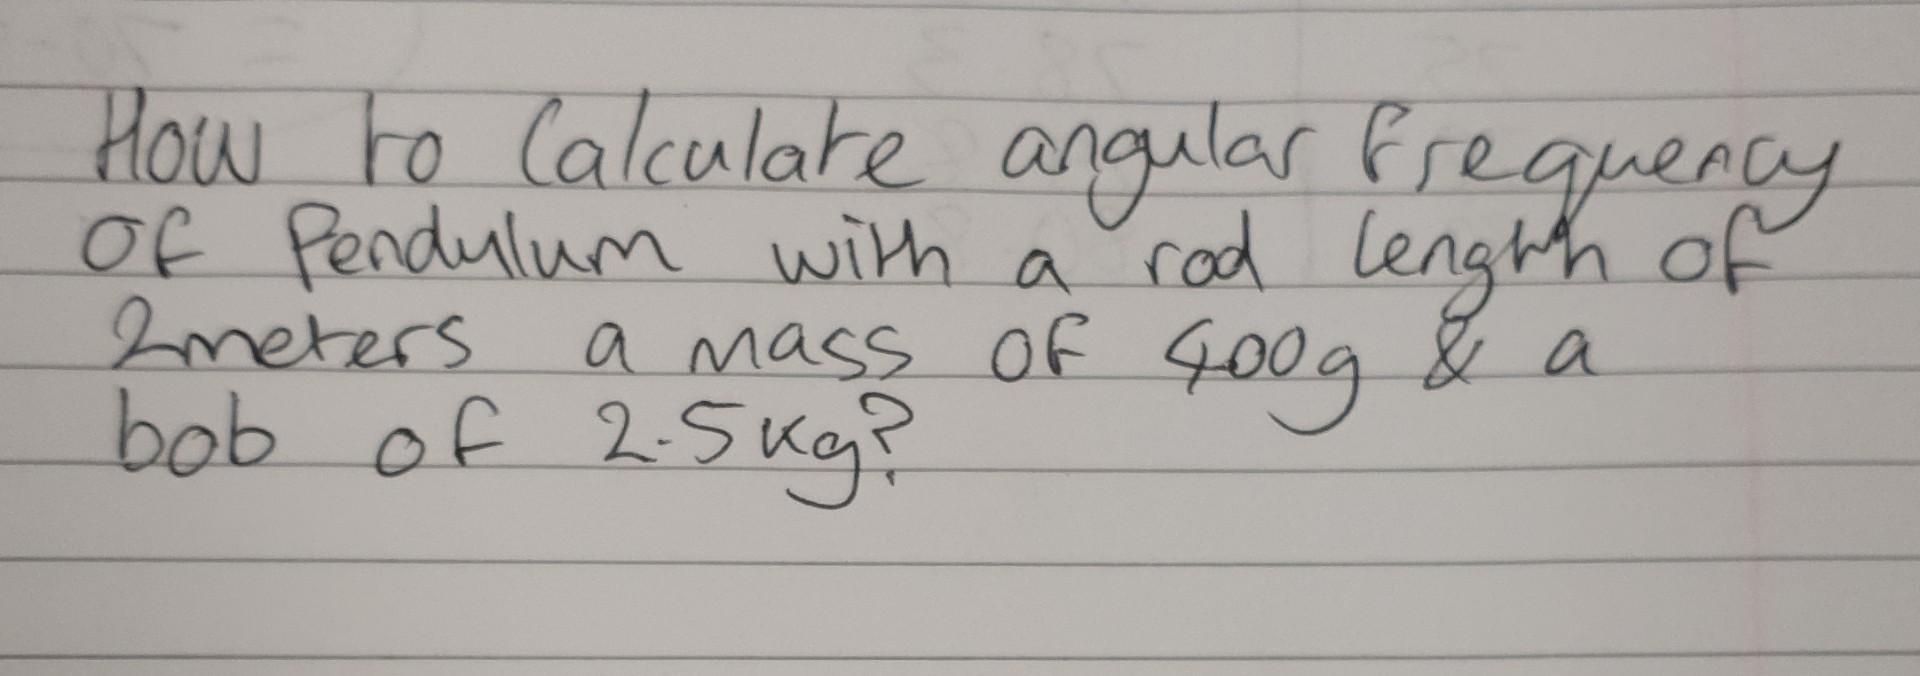 How to Calculate angular frequency
of Pendulum with a rod length of
2meters a mass of 400g & a
bob of 2.5kg?